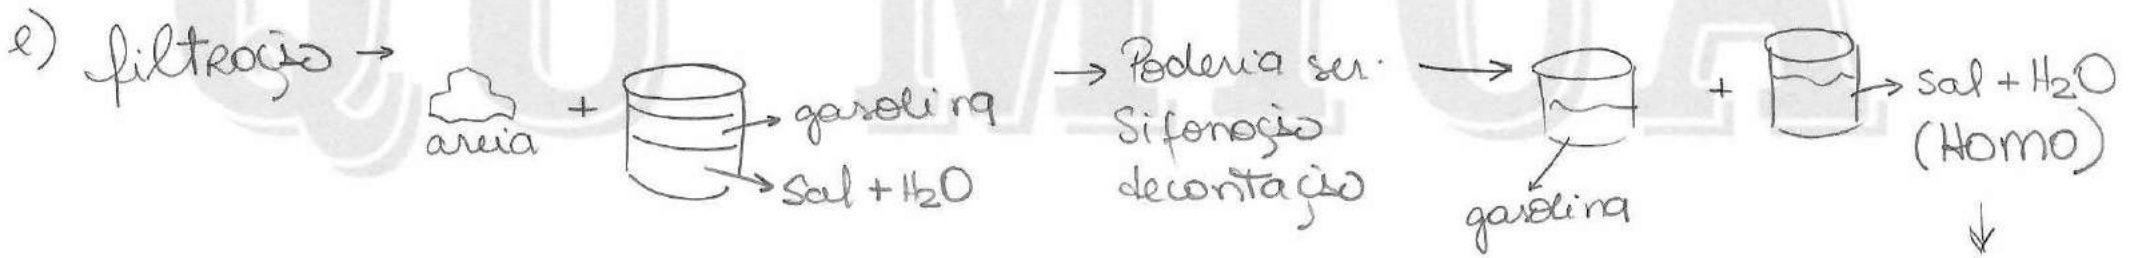 e) filtração → areia + gasolina
sal + H₂O
→ Poderia ser.
Sifonação
decantação
→ gasolina
+ → sal + H₂O
(Homo)
↓
QUÍMICA